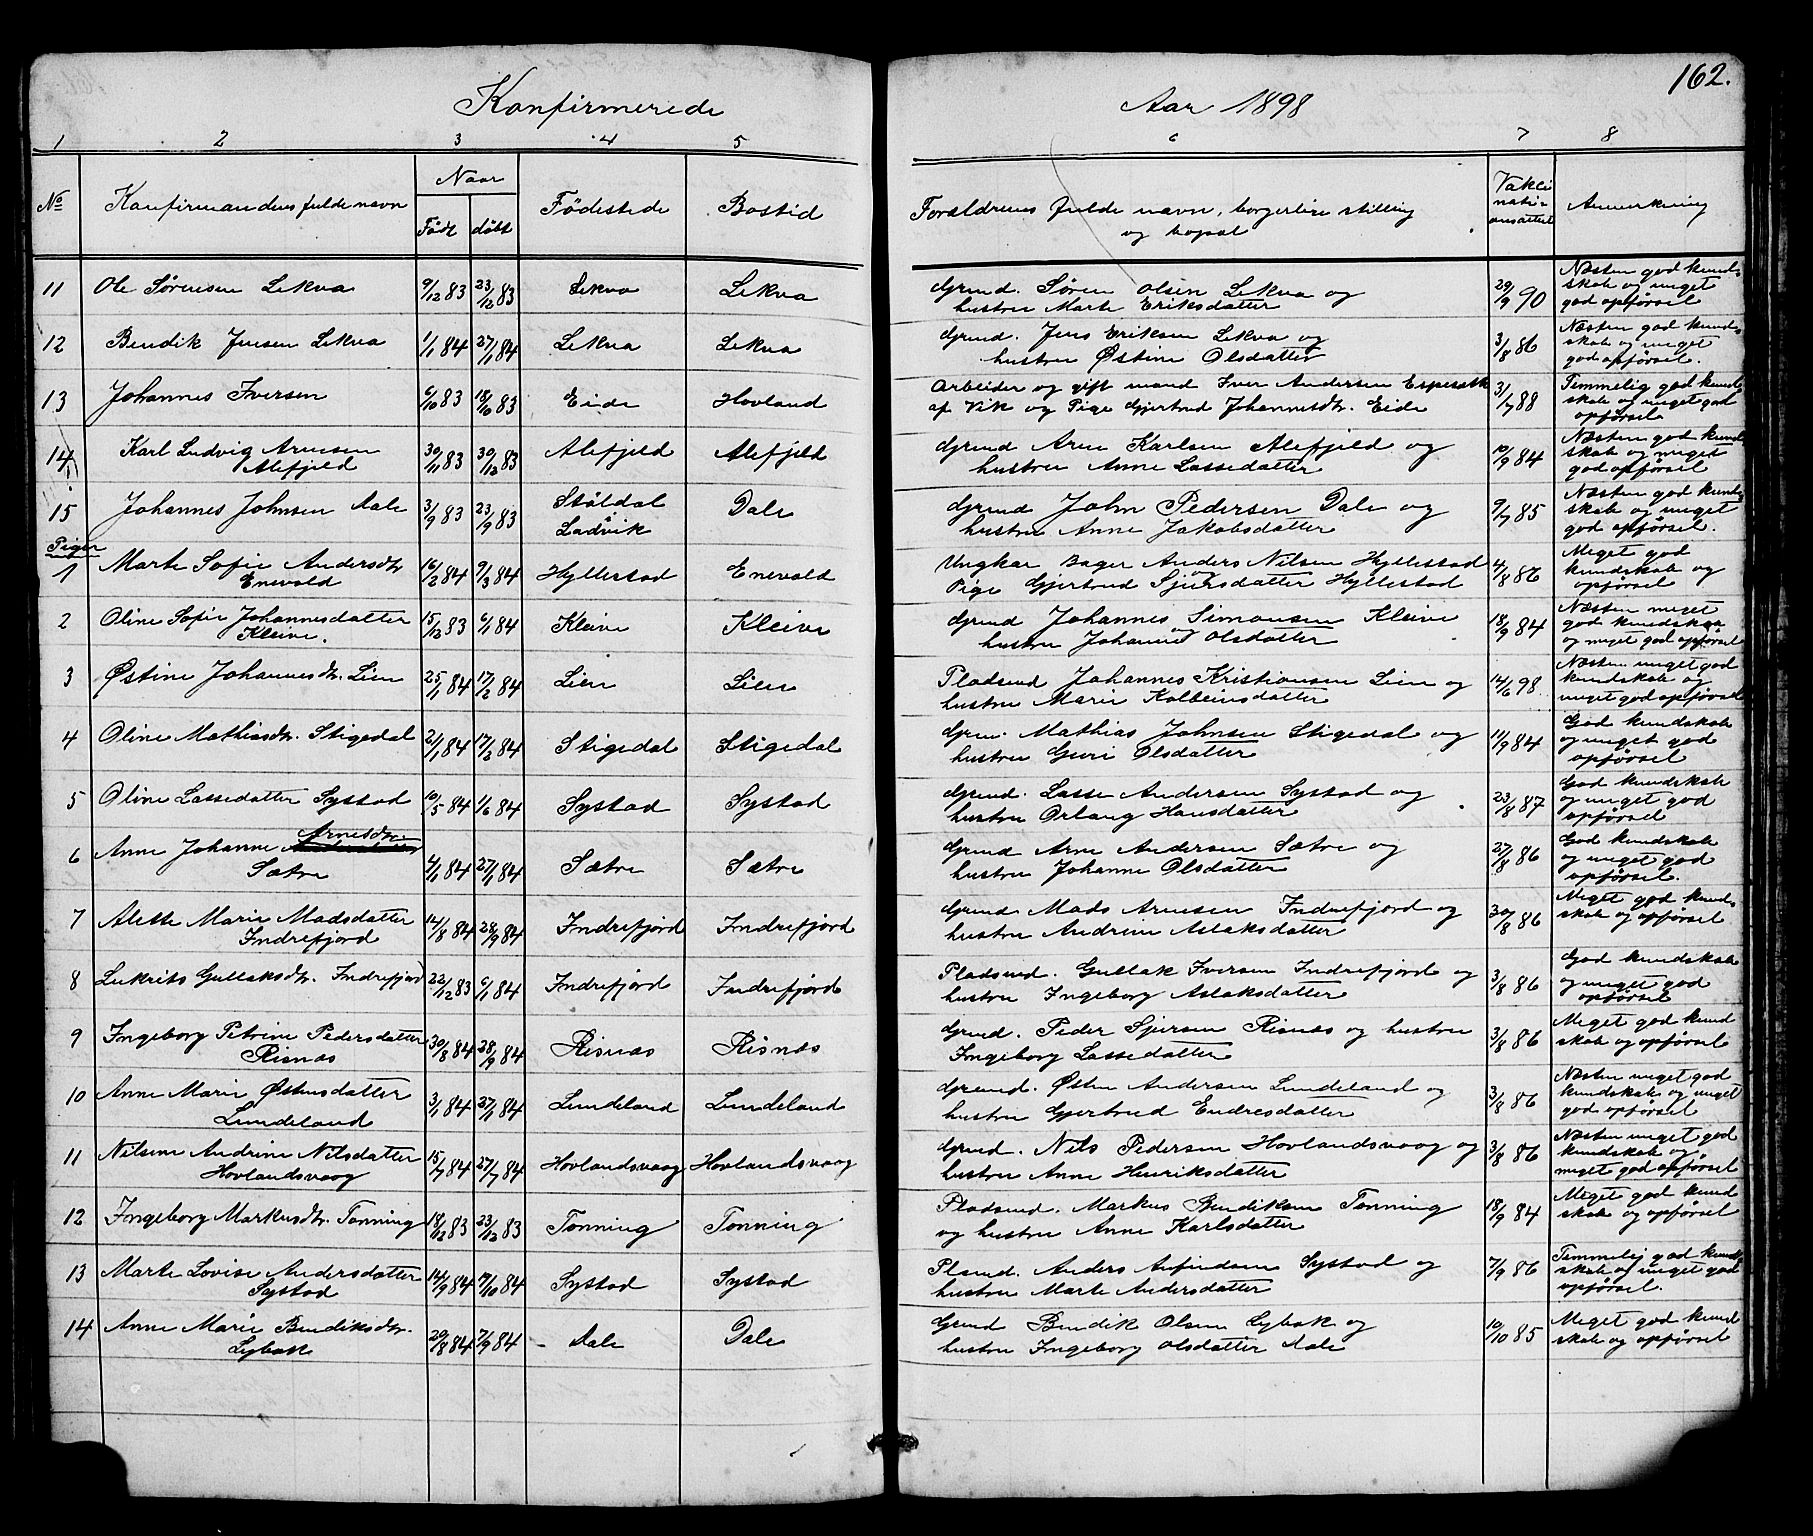 162.
Konfirmerede
Aar 1898
1 2 3 4 5 6 7 8
No Konfirmandens fulde navn Naar Født døbt Fødested Bosted Forældrenes fulde navn, borgerlige stilling og bopæl Vakci nati- onsattest Anmerkning
11 Ole Sørensen Lekva 9/12 83 23/12 83 Lekva Lekva Grmd. Søren Olsen Lekva og 29/9 90 Næsten god kund-
hustru Marte Eriksdatter skab og meget
god opførsel
12 Bendik Jensen Lekva 1/1 84 27/1 84 Lekva Lekva Grmd. Jens Eriksen Lekva og 3/8 86 Næsten god kund-
hustru Østine Olsdatter skab og meget
god opførsel.
13 Johannes Iversen 6/10 83 18/10 83 Eide Hovland Arbeider og gift mand Iver Andersen 31/7 88 Temmelig god kund-
af Vik og Pige Gjertrud Johannesdtr. Eide skab og meget god
opførsel
14 Karl Ludvig Arnesen 30/11 83 30/12 83 Alefjeld Alefjeld Grmd Arne Karlsen Alefjeld og 10/9 84 Næsten god kund-
Alefjeld hustru Anne Lassedatter skab og meget
god opførsel
15 Johannes Johnsen Dale 3/9 83 23/9 83 Støldal Dale Grmd John Pedersen Dale og 9/7 85 Næsten god kund-
Ladvik hustru Anne Jakobsdatter skab og meget
god opførsel.
Piger
1 Marte Sofie Andersdtr 16/2 84 9/3 84 Hyllestad Enevold Ungkar Bager Anders Nilsen Hyllestad 4/8 86 Meget god
Enevold Pige Gjertrud Sjursdatter Hyllestad kundskab og
opførsel
2 Oline Sofie Johannesdatter 15/12 83 6/1 84 Kleive Kleive Grmd Johannes Simonsen Kleive 18/9 84 Næsten meget
Kleive. hustru Johanne Olsdatter god kundskab
og meget god opførsel
3 Østine Johannesdtr. Lien 25/1 84 17/2 84 Lien Lien Pladsmd Johannes Kristiansen Lien og 14/6 98 Næsten meget god
hustru Marie Kolbeinsdatter kundskab og
meget god opførsel
4 Oline Mathiasdtr. Stigedal 21/1 84 17/2 84 Stigedal Stigedal Grm. Mathias Johnsen Stigedal og 11/9 84 God kundskab
hustru Guri Olsdatter og meget god
opførsel
5 Oline Lassedatter Systad 10/5 84 1/6 84 Systad Systad Grmd. Lasse Andersen Systad og 23/8 87 God kundskab
hustru Orlaug Hansdatter og meget god
opførsel
Arnesdtr.
6 Anne Johanne 4/1 84 27/1 84 Sætre Sætre Grmd Arne Andersen Sætre og 27/8 86 God kundskab
Sætre hustru Johanne Olsdatter og meget god
opførsel.
7 Alette Marie Madsdatter 14/8 84 28/9 84 Indrefjord Indrefjord Grmd Mads Arnesen Indrefjord og 30/8 86 Meget god kund-
Indrefjord hustru Andrine Aslaksdatter skab og opførsel
8 Lukrits Gullaksdtr. Indrefjord 22/12 83 6/1 84 Indrefjord Indrefjord Pladsmd. Gullak Iversen Indrefjord og 3/8 86 God kundskab
hustru Ingeborg Aslaksdatter og meget god
opførsel
9 Ingeborg Petrine Pedersdatter 30/8 84 28/9 84 Risnæs Risnæs Grmd. Peder Sjursen Risnæs og hustru 3/8 86 Meget god kund
Risnæs Ingeborg Lassedatter skab og opførsel
10 Anne Marie Østensdatter 3/1 84 27/1 84 Lundeland Lundeland Grmd. Østen Andersen Lundeland og 3/8 86 Næsten meget god
Lundeland hustru Gjertrud Endresdatter kundskab og meget
god opførsel
11 Nilsine Andrine Nilsdatter 15/7 84 27/7 84 Hovlandsvaag Hovlandsvaag Grmd. Nils Pedersen Hovlandsvaag og 3/8 86 Næsten meget god
Hovlandsvaag hustru Anne Henriksdatter kundskab og
meget god opførsel
12 Ingeborg Markusdtr. Tønning 18/12 83 23/12 83 Tønning Tønning Pladsmd. Markus Bendiksen Tønning 18/9 84 Meget god kund
og hustru Anne Karlsdatter skab og opførsel
13 Marte Lovise Andersdatter 14/9 84 7/10 84 Systad Systad Plsmd. Anders Anfindsen Systad og 7/9 86 Temmelig god kund-
Systad hustru Marte Andersdatter skab og meget god
opførsel.
14 Anne Marie Bendiksdtr. 20/8 84 7/9 84 Dale Dale Grmd Bendik Olsen Lybæk og 10/10 85 Meget god kund
Lybæk hustru Ingeborg Olsdatter Dale skab og opførsel